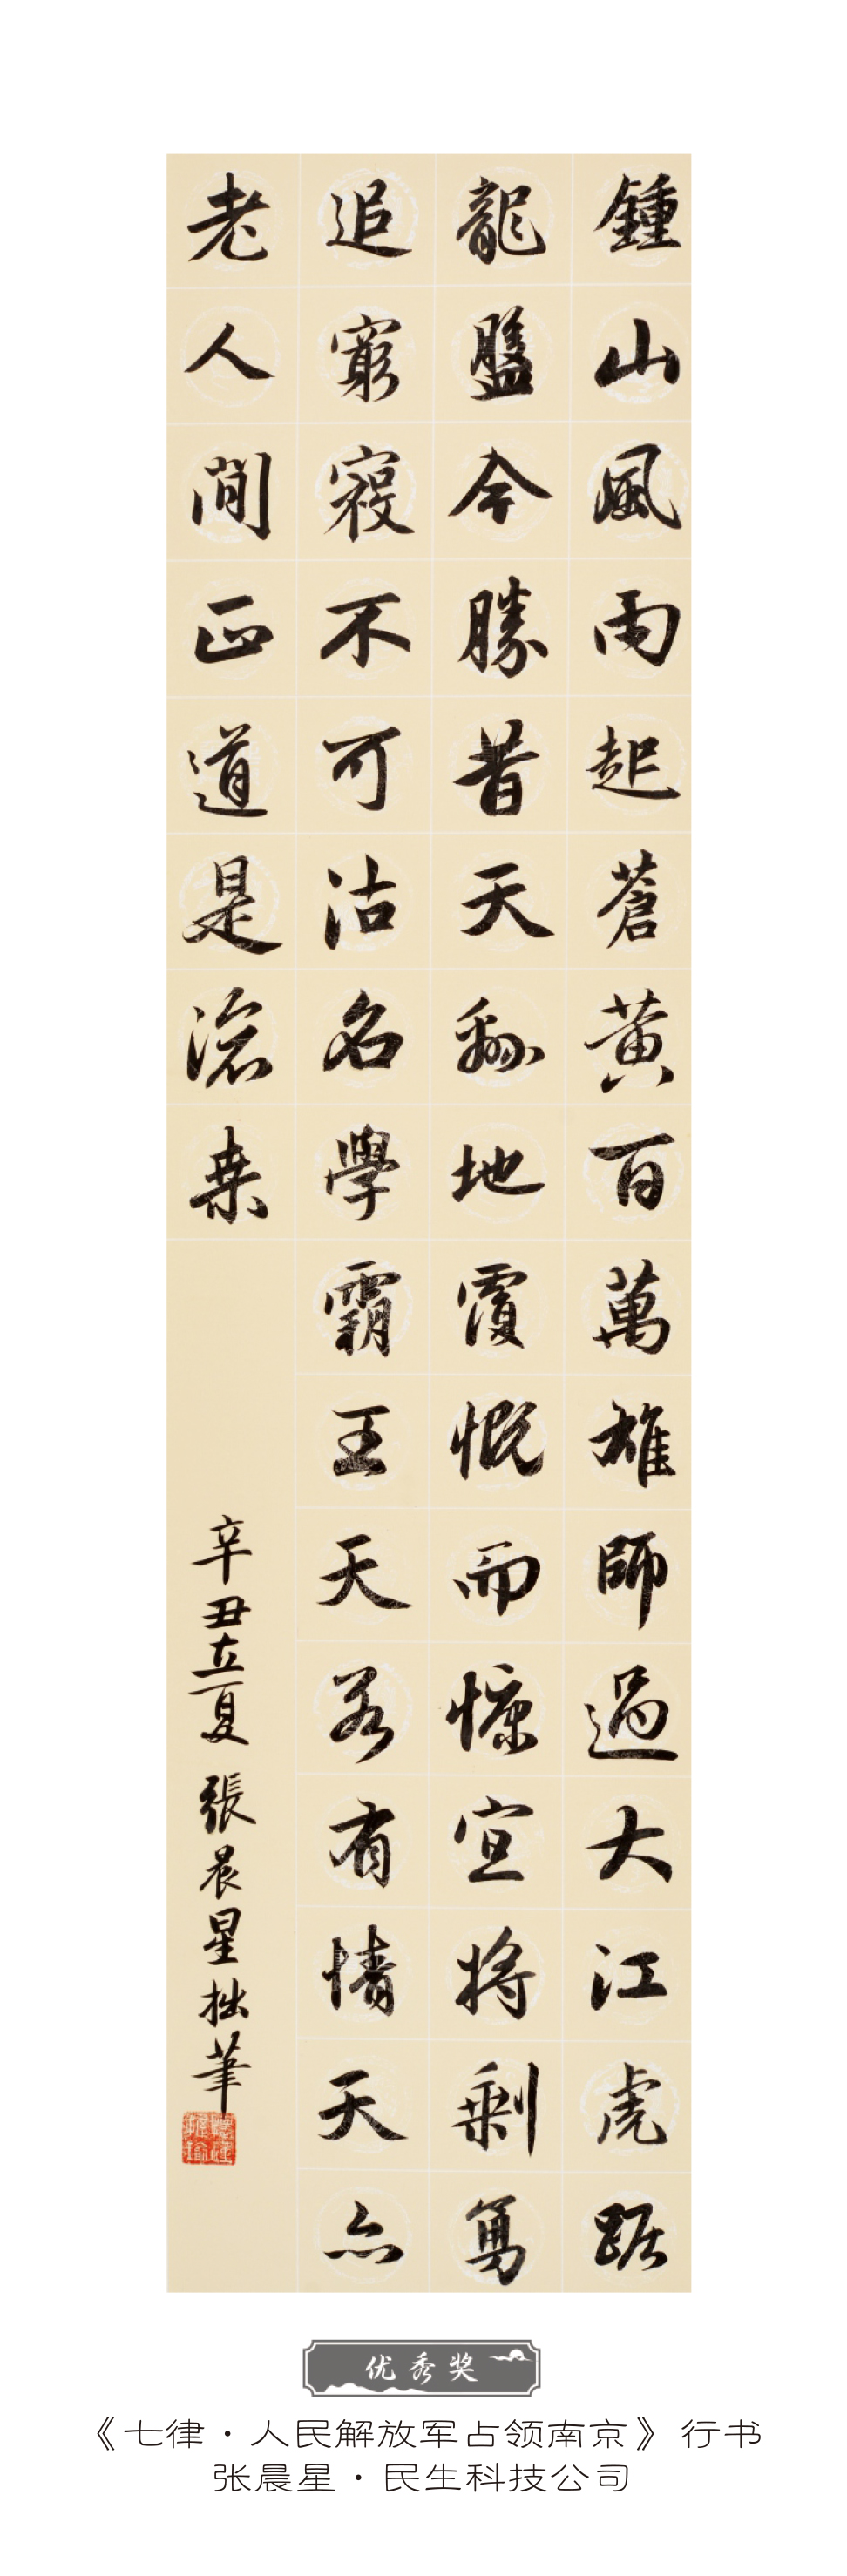 鍾山風雨起蒼黄百萬雄師過大江虎踞
龍盤今勝昔天翻地覆慨而慷宜將剩勇
追窮寇不可沽名學霸王天若有情天亦
老人間正道是滄桒
辛丑立夏 張晨星拙筆
优秀奖
《七律·人民解放军占领南京》行书
张晨星·民生科技公司